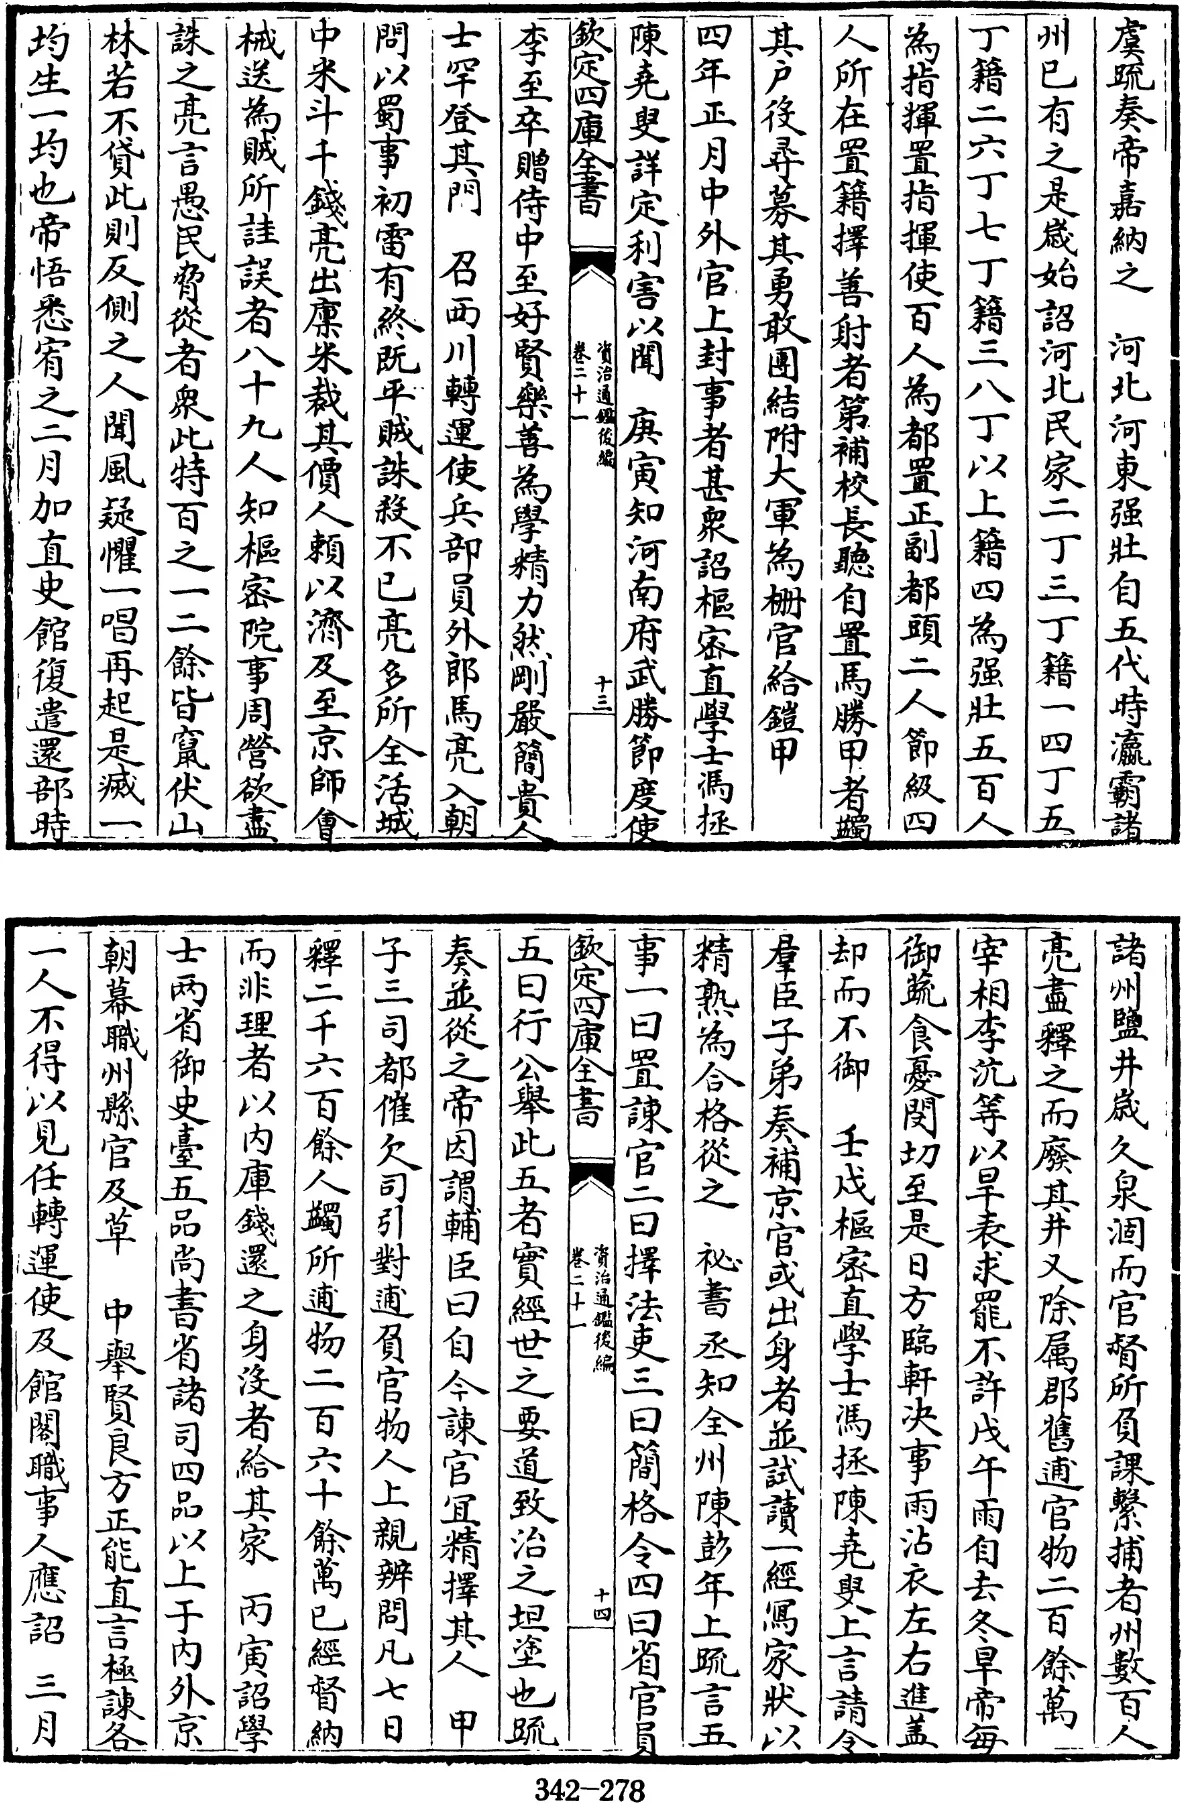 虞疏奏帝嘉納之　河北河東强壯自五代時瀛霸諸
州已有之是歲始詔河北民家二丁三丁籍一四丁五
丁籍二六丁七丁籍三八丁以上籍四為强壯五百人
為指揮置指揮使百人為都置正副都頭二人節級四
人所在置籍擇善射者第補校長聽自置馬勝甲者蠲
其户役尋募其勇敢團結附大軍為柵官給鎧甲
四年正月中外官上封事者甚衆詔樞密直學士馮拯
陳堯叟詳定利害以聞　庚寅知河南府武勝節度使
欽定四庫全書
資治通鑑後編
卷二十一
十三
李至卒贈侍中至好賢樂善為學精力然剛嚴簡貴人
士罕登其門　召西川轉運使兵部員外郎馬亮入朝
問以蜀事初雷有終既平賊誅殺不已亮多所全活城
中米斗千錢亮出廩米裁其價人賴以濟及至京師會
械送為賊所詿誤者八十九人知樞密院事周營欲盡
誅之亮言愚民脅從者衆此特百之一二餘皆竄伏山
林若不貸此則反側之人聞風疑懼一唱再起是滅一
均生一均也帝悟悉宥之二月加直史館復遣還部時
諸州鹽井歲久泉涸而官督所負課繫捕者州數百人
亮盡釋之而廢其井又除属郡舊逋官物二百餘萬
宰相李沆等以旱表求罷不許戊午雨自去冬旱帝每
御蔬食憂閔切至是日方臨軒决事雨沾衣左右進蓋
却而不御　壬戌樞密直學士馮拯陳堯叟上言請令
羣臣子弟奏補京官或出身者並試讀一經寫家狀以
精熟為合格從之　祕書丞知全州陳彭年上疏言五
事一曰置諫官二曰擇法吏三曰簡格令四曰省官員
欽定四庫全書
資治通鑑後編
卷二十一
十四
五曰行公舉此五者實經世之要道致治之坦塗也疏
奏並從之帝因謂輔臣曰自今諫官宜精擇其人　甲
子三司都催欠司引對逋負官物人上親辨問凡七日
釋二千六百餘人蠲所逋物二百六十餘萬已經督納
而非理者以内庫錢還之身没者給其家　丙寅詔學
士兩省御史臺五品尚書省諸司四品以上于内外京
朝幕職州縣官及草　中舉賢良方正能直言極諫各
一人不得以見任轉運使及館閣職事人應詔　三月
342-278